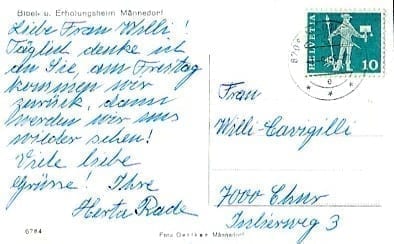 Bibel- u. Erholungsheim Männedorf
Liebe Frau Willi!
Täglich denke ich
an Sie, am Freitag
kommen wir
zurück, dann
werden wir uns
wieder sehen!
Viele liebe
Grüsse! Ihre
Herta Rade
6784
HELVETIA
10
8708
Frau
Willi-Cavigilli
7000 Chur
Julierweg 3
Foto Männedorf